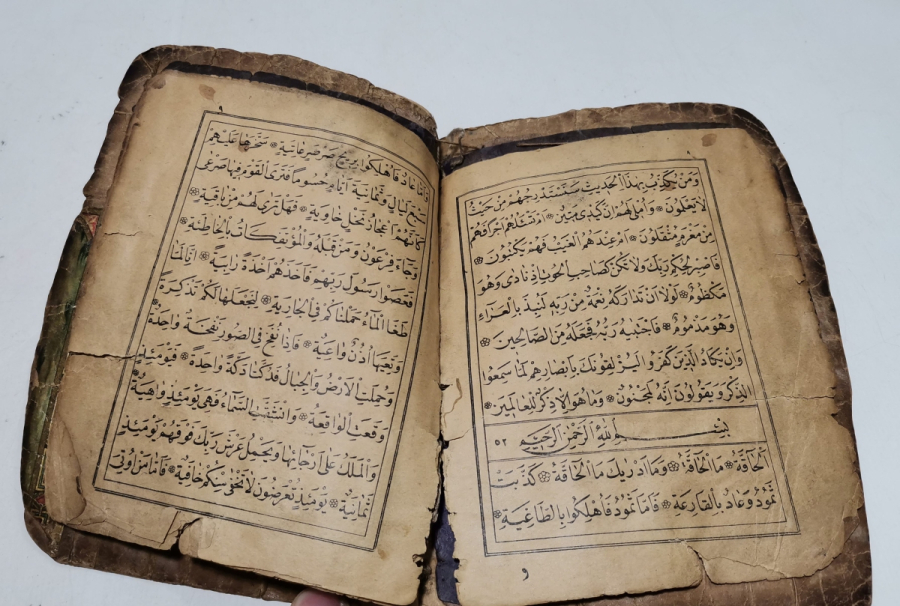 وَمَنْ يُكَذِّبُ بِهٰذَا الْحَدِيثِ سَنَسْتَدْرِجُهُمْ مِنْ حَيْثُ
لَا يَعْلَمُونَ ۞ وَاُمْلِى لَهُمْ اِنَّ كَيْدِى مَتِينٌ ۞ اَمْ تَسْئَلُهُمْ اَجْرًا فَهُمْ
مِنْ مَغْرَمٍ مُثْقَلُونَ ۞ اَمْ عِنْدَهُمُ الْغَيْبُ فَهُمْ يَكْتُبُونَ ۞
فَاصْبِرْ لِحُكْمِ رَبِّكَ وَلَا تَكُنْ كَصَاحِبِ الْحُوتِ اِذْ نَادٰى وَهُوَ
مَكْظُومٌ ۞ لَوْلَا اَنْ تَدَارَكَهُ نِعْمَةٌ مِنْ رَبِّهِ لَنُبِذَ بِالْعَرَاءِ
وَهُوَ مَذْمُومٌ ۞ فَاجْتَبٰيهُ رَبُّهُ فَجَعَلَهُ مِنَ الصَّالِحِينَ ۞
وَاِنْ يَكَادُ الَّذِينَ كَفَرُوا لَيُزْلِقُونَكَ بِاَبْصَارِهِمْ لَمَّا سَمِعُوا
الذِّكْرَ وَيَقُولُونَ اِنَّهُ لَمَجْنُونٌ ۞ وَمَا هُوَ اِلَّا ذِكْرٌ لِلْعَالَمِينَ ۞
بِسْمِ اللّٰهِ الرَّحْمٰنِ الرَّحِيمِ ٥٢
اَلْحَاقَّةُ ۞ مَا الْحَاقَّةُ ۞ وَمَا اَدْرٰيكَ مَا الْحَاقَّةُ ۞ كَذَّبَتْ
ثَمُودُ وَعَادٌ بِالْقَارِعَةِ ۞ فَاَمَّا ثَمُودُ فَاُهْلِكُوا بِالطَّاغِيَةِ ۞
و
وَاَمَّا عَادٌ فَاُهْلِكُوا بِرِيحٍ صَرْصَرٍ عَاتِيَةٍ ۞ سَخَّرَهَا عَلَيْهِمْ
سَبْعَ لَيَالٍ وَثَمَانِيَةَ اَيَّامٍ حُسُومًا فَتَرَى الْقَوْمَ فِيهَا صَرْعٰى
كَاَنَّهُمْ اَعْجَازُ نَخْلٍ خَاوِيَةٍ ۞ فَهَلْ تَرٰى لَهُمْ مِنْ بَاقِيَةٍ ۞
وَجَاءَ فِرْعَوْنُ وَمَنْ قَبْلَهُ وَالْمُؤْتَفِكَاتُ بِالْخَاطِئَةِ ۞
فَعَصَوْا رَسُولَ رَبِّهِمْ فَاَخَذَهُمْ اَخْذَةً رَابِيَةً ۞ اِنَّا لَمَّا
طَغَا الْمَاءُ حَمَلْنَاكُمْ فِى الْجَارِيَةِ ۞ لِنَجْعَلَهَا لَكُمْ تَذْكِرَةً
وَتَعِيَهَا اُذُنٌ وَاعِيَةٌ ۞ فَاِذَا نُفِخَ فِى الصُّورِ نَفْخَةٌ وَاحِدَةٌ
وَحُمِلَتِ الْاَرْضُ وَالْجِبَالُ فَدُكَّتَا دَكَّةً وَاحِدَةً ۞ فَيَوْمَئِذٍ
وَقَعَتِ الْوَاقِعَةُ ۞ وَانْشَقَّتِ السَّمَاءُ فَهِىَ يَوْمَئِذٍ وَاهِيَةٌ
وَالْمَلَكُ عَلٰى اَرْجَائِهَا وَيَحْمِلُ عَرْشَ رَبِّكَ فَوْقَهُمْ يَوْمَئِذٍ
ثَمَانِيَةٌ ۞ يَوْمَئِذٍ تُعْرَضُونَ لَا تَخْفٰى مِنْكُمْ خَافِيَةٌ ۞ فَاَمَّا مَنْ اُوتِىَ